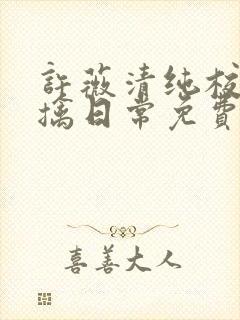 許薇清纯校
擒日常免費
喜善大人